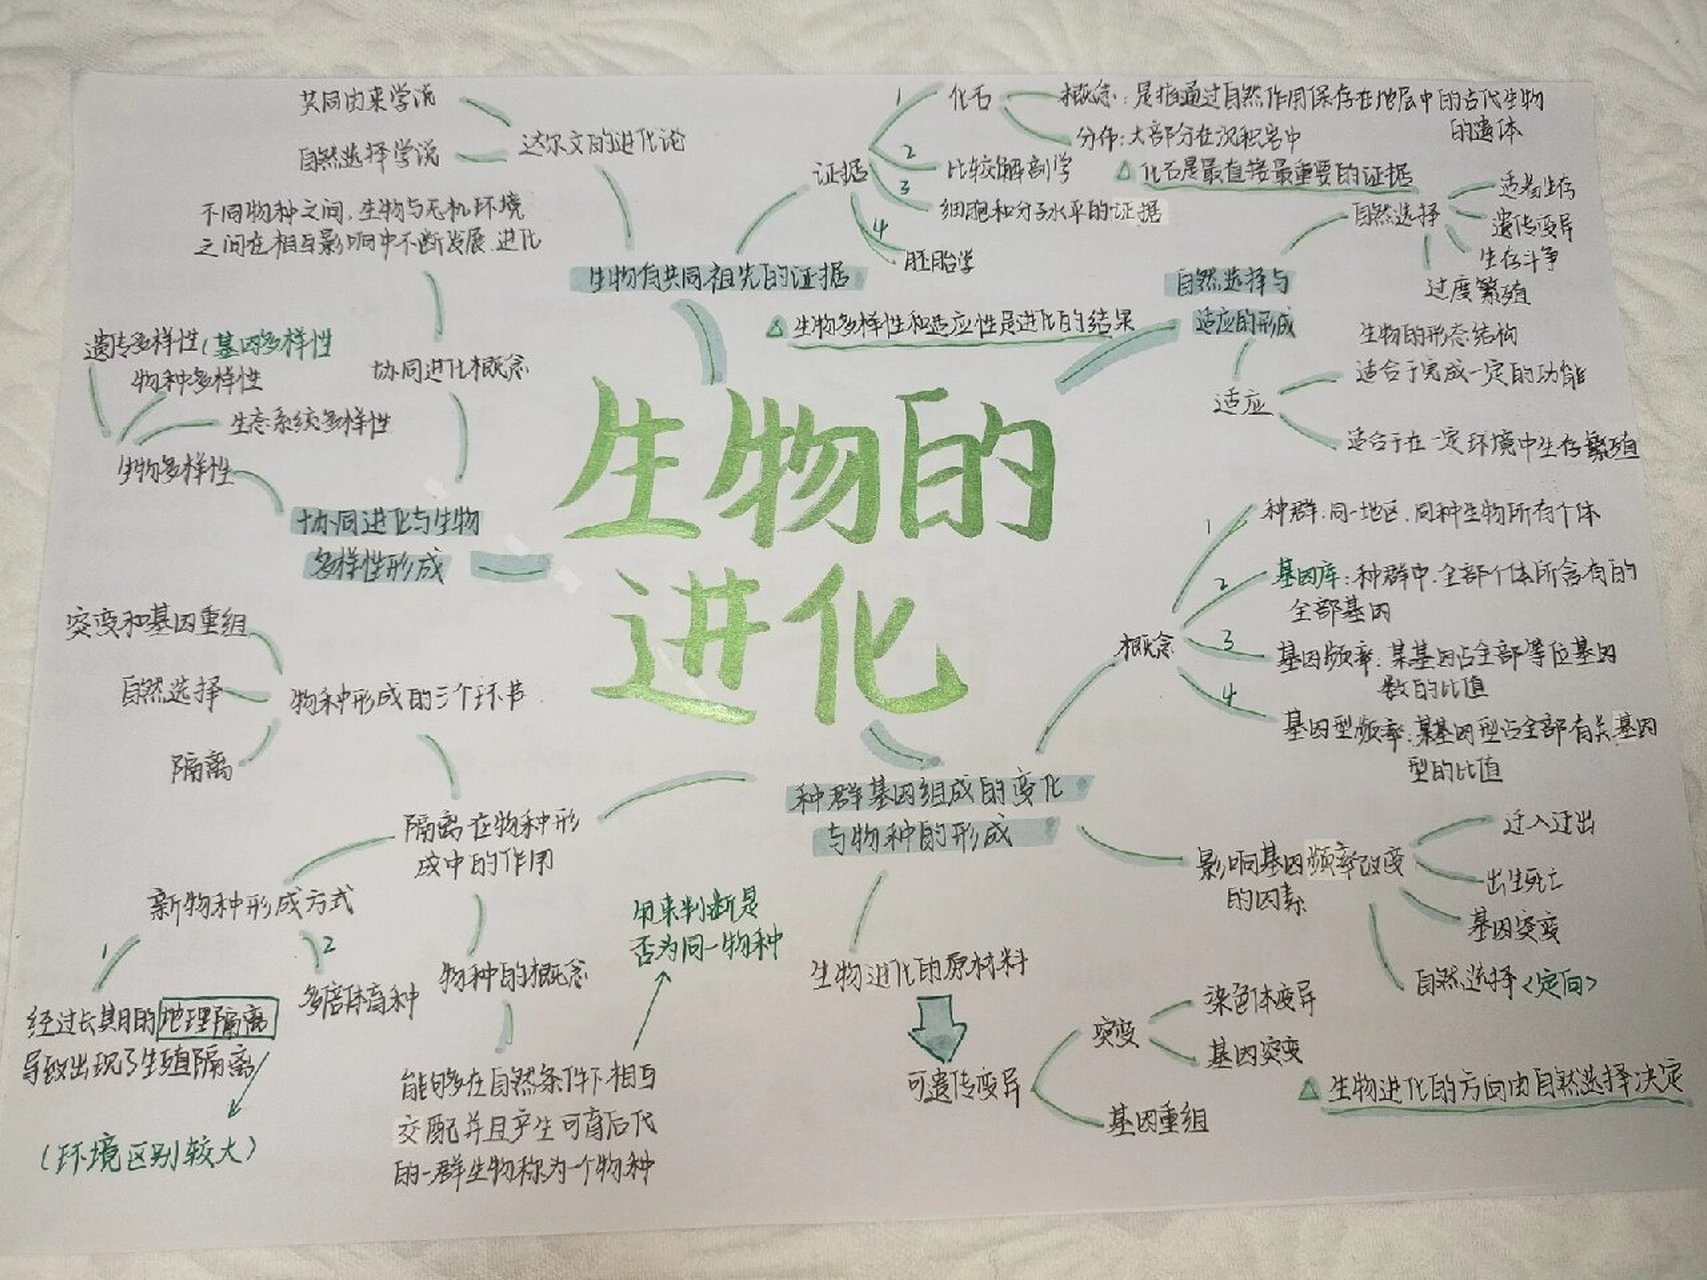 生物的
进化
生物有共同祖先的证据
达尔文的进化论
共同由来学说
自然选择学说
证据
1 化石
概念：是指通过自然作用保存在地层中的古代生物
的遗体
分布：大部分在沉积岩中
△ 化石是最直接最重要的证据
2 比较解剖学
3 细胞和分子水平的证据
4 胚胎学
△ 生物多样性和适应性是进化的结果
自然选择与
适应的形成
自然选择
适者生存
遗传变异
生存斗争
过度繁殖
适应
生物的形态结构
适合于完成一定的功能
适合于在一定环境中生存繁殖
种群基因组成的变化
与物种的形成
概念
1 种群：同一地区，同种生物所有个体
2 基因库：种群中，全部个体所含有的
全部基因
3 基因频率：某基因占全部等位基因
数的比值
4 基因型频率：某基因型占全部有关基因
型的比值
影响基因频率改变
的因素
迁入迁出
出生死亡
基因突变
自然选择<定向>
生物进化的原材料
可遗传变异
突变
染色体变异
基因突变
基因重组
△ 生物进化的方向由自然选择决定
隔离在物种形
成中的作用
物种形成的三个环节
突变和基因重组
自然选择
隔离
新物种形成方式
1
经过长期的地理隔离
导致出现了生殖隔离
（环境区别较大）
2
多倍体育种
物种的概念
能够在自然条件下相互
交配并且产生可育后代
的一群生物称为一个物种
用来判断是
否为同一物种
协同进化与生物
多样性形成
协同进化概念
不同物种之间，生物与无机环境
之间在相互影响中不断发展、进化
生物多样性
遗传多样性（基因多样性
物种多样性
生态系统多样性